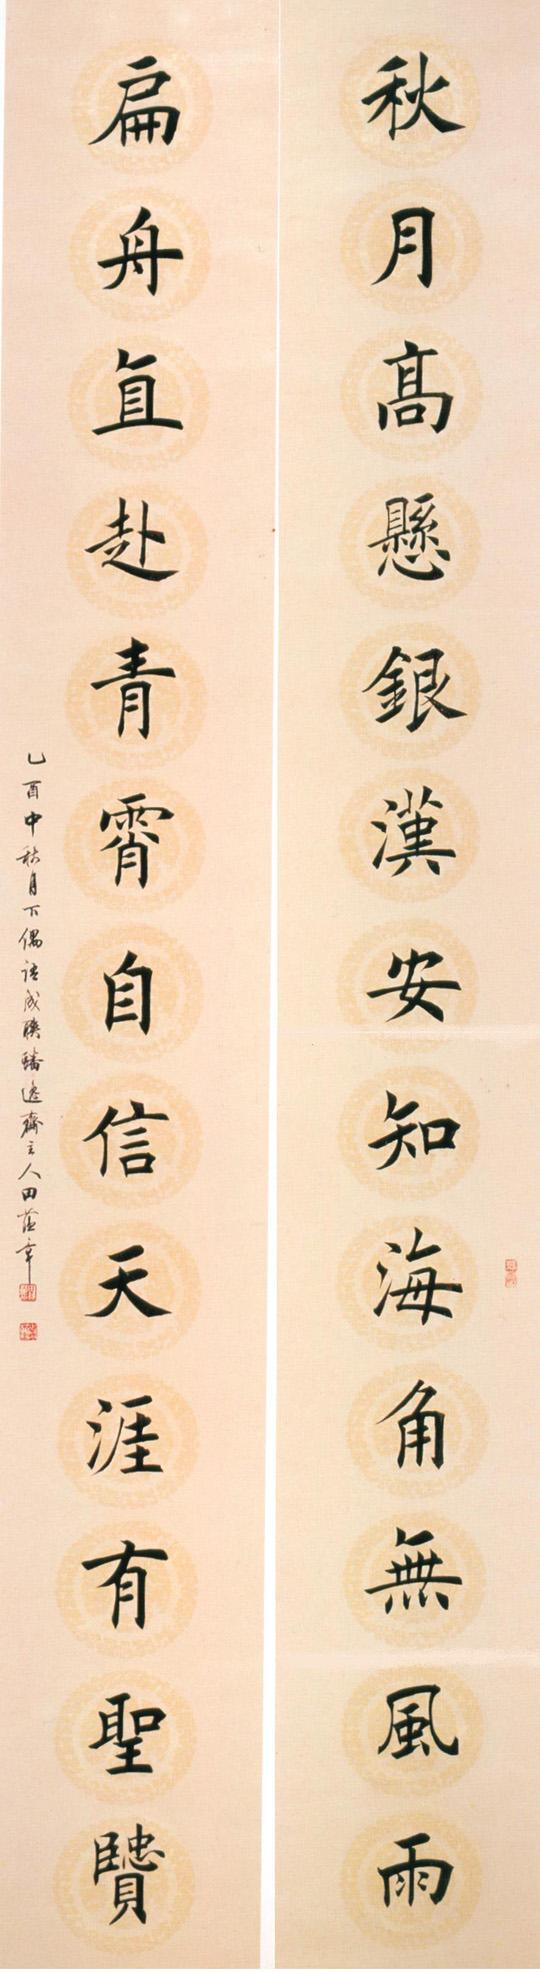 秋月高懸銀漢安知海角無風雨
扁舟直赴青霄自信天涯有聖賢
乙酉中秋月下偶語成聯蟠逸齋主人田蘊章